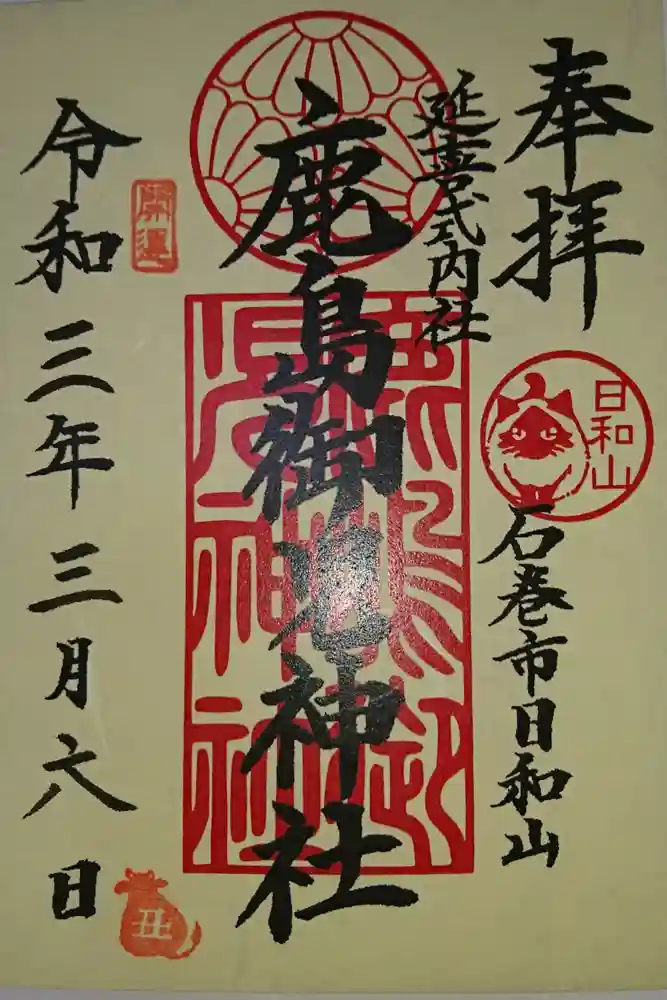 奉拝
日和山
石巻市日和山
延喜式内社
鹿島御児神社
鹿島御
兒神社
開運
令和三年三月六日
丑